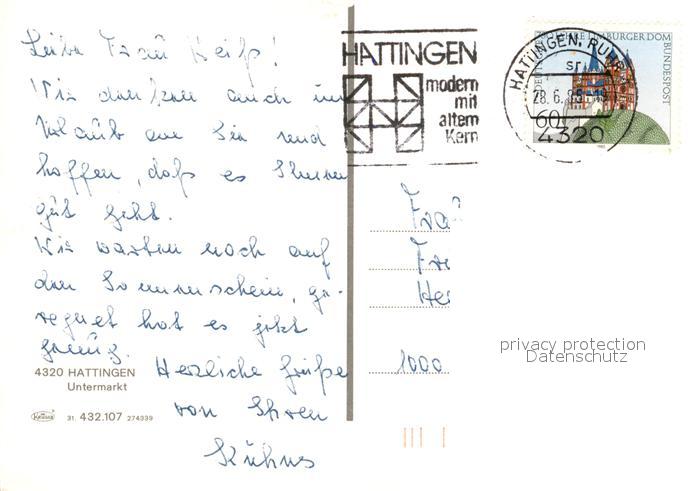 Liebe Frau Keiß!
Wir denken auch im
Urlaub an Sie und
hoffen, daß es Ihnen
gut geht.
Wir warten noch auf
den Sonnenschein, ge-
regnet hat es jetzt
genug.
Herzliche Grüße
von Ihren
Kühns
4320 HATTINGEN
Untermarkt
Krüger 31. 432.107 274339
HATTINGEN
modern
mit
altem
Kern
HATTINGEN, RUHR
28.6.85
4320
LIMBURGER DOM
BUNDESPOST
60
Frau
1000
privacy protection
Datenschutz